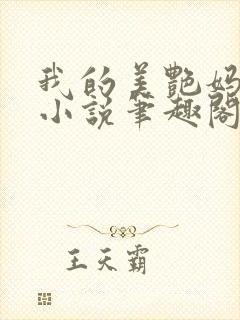 我的美艷妈
小說筆趣閣
王天霸